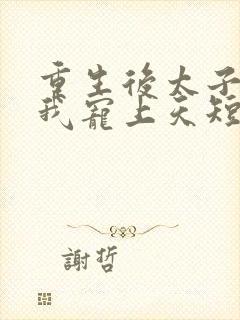 重生後太子
我寵上天短
謝哲